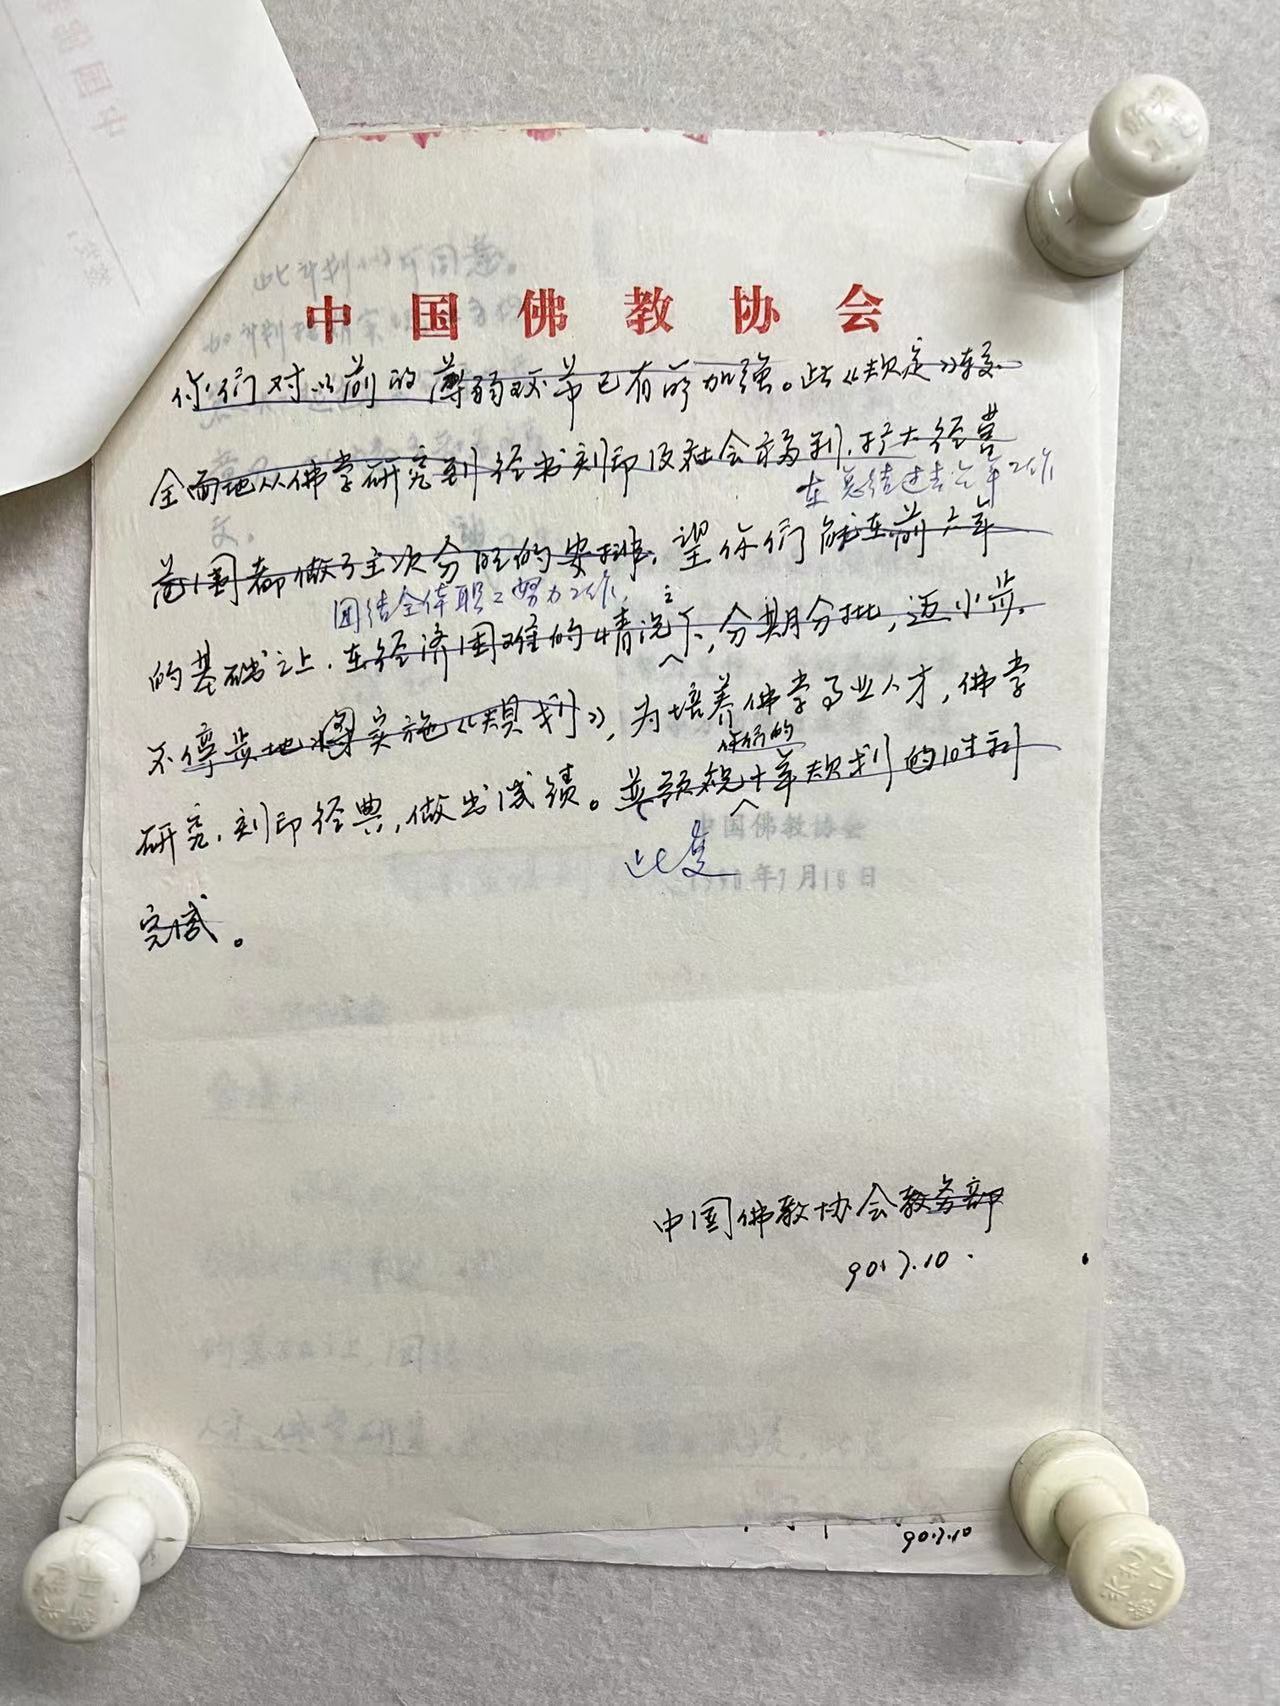 中国佛教协会
你们对以前的薄弱环节已有所加强。此《规定》较
全面地从佛学研究到经书刻印及社会福利、扩大经营
在总结过去六年工作
范围都做了主次分明的安排。望你们能在前六年
团结全体职工努力工作,
的基础之上,在经济困难的情况之下,分期分批,迈小步。
不停步地实施《规划》,为培养佛学专业人才,佛学
你们的
研究,刻印经典,做出成绩。并预祝十年规划的胜利
此复
完成。
中国佛教协会
1990年7月18日
中国佛教协会教务部
90.7.10.
90.7.10